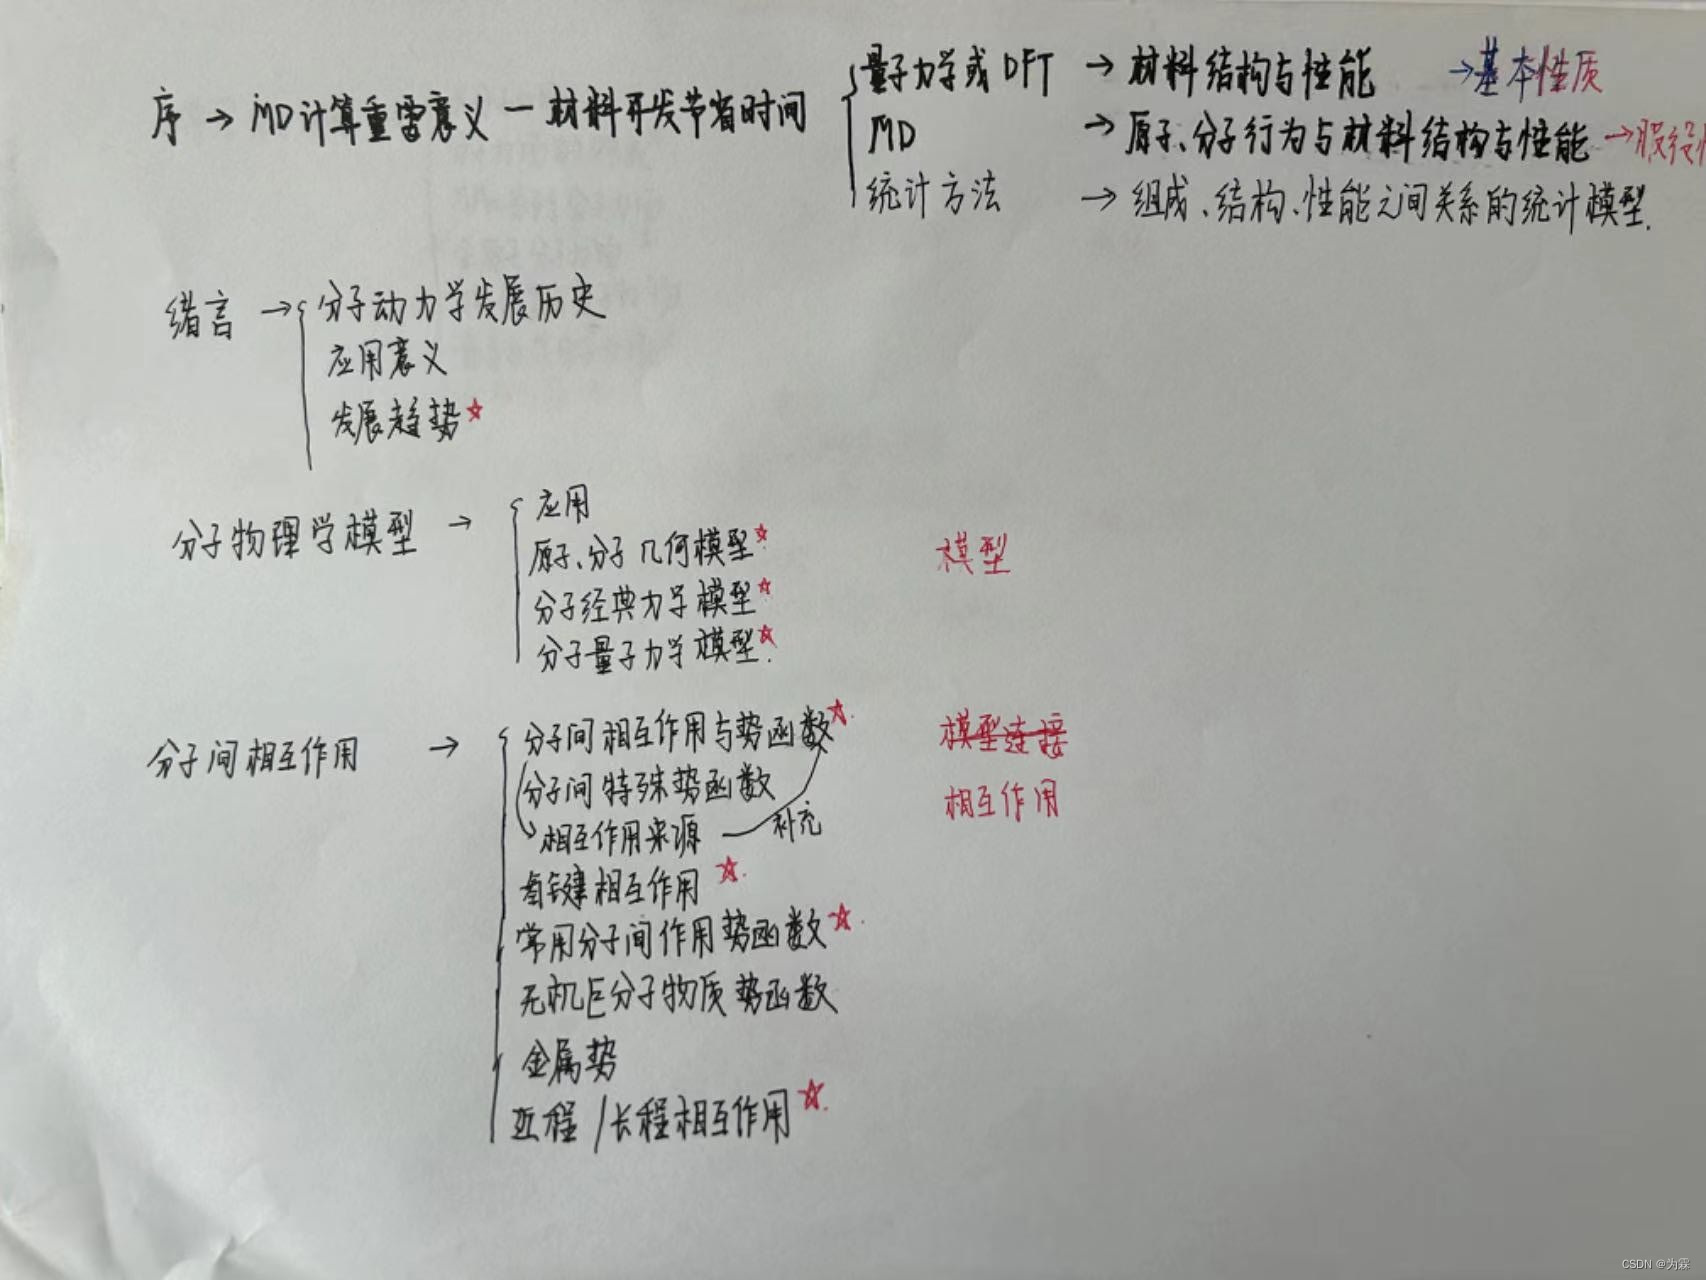 量子力学或 DFT → 材料结构与性能 → 基本性质
序 → MD计算重需意义 — 材料开发节省时间
MD → 原子、分子行为与材料结构与性能 →
统计方法 → 组成、结构、性能之间关系的统计模型.
绪言 → 分子动力学发展历史
应用意义
发展趋势☆
分子物理学模型 → 应用
原子、分子几何模型☆ 模型
分子经典力学模型☆
分子量子力学模型☆.
分子间相互作用 → 分子间相互作用与势函数☆. 模型连接
分子间特殊势函数
相互作用
相互作用来源 — 补充
有键相互作用 ☆.
常用分子间作用势函数☆.
无机巨分子物质势函数
金属势
近程/长程相互作用☆.
CSDN @为霖